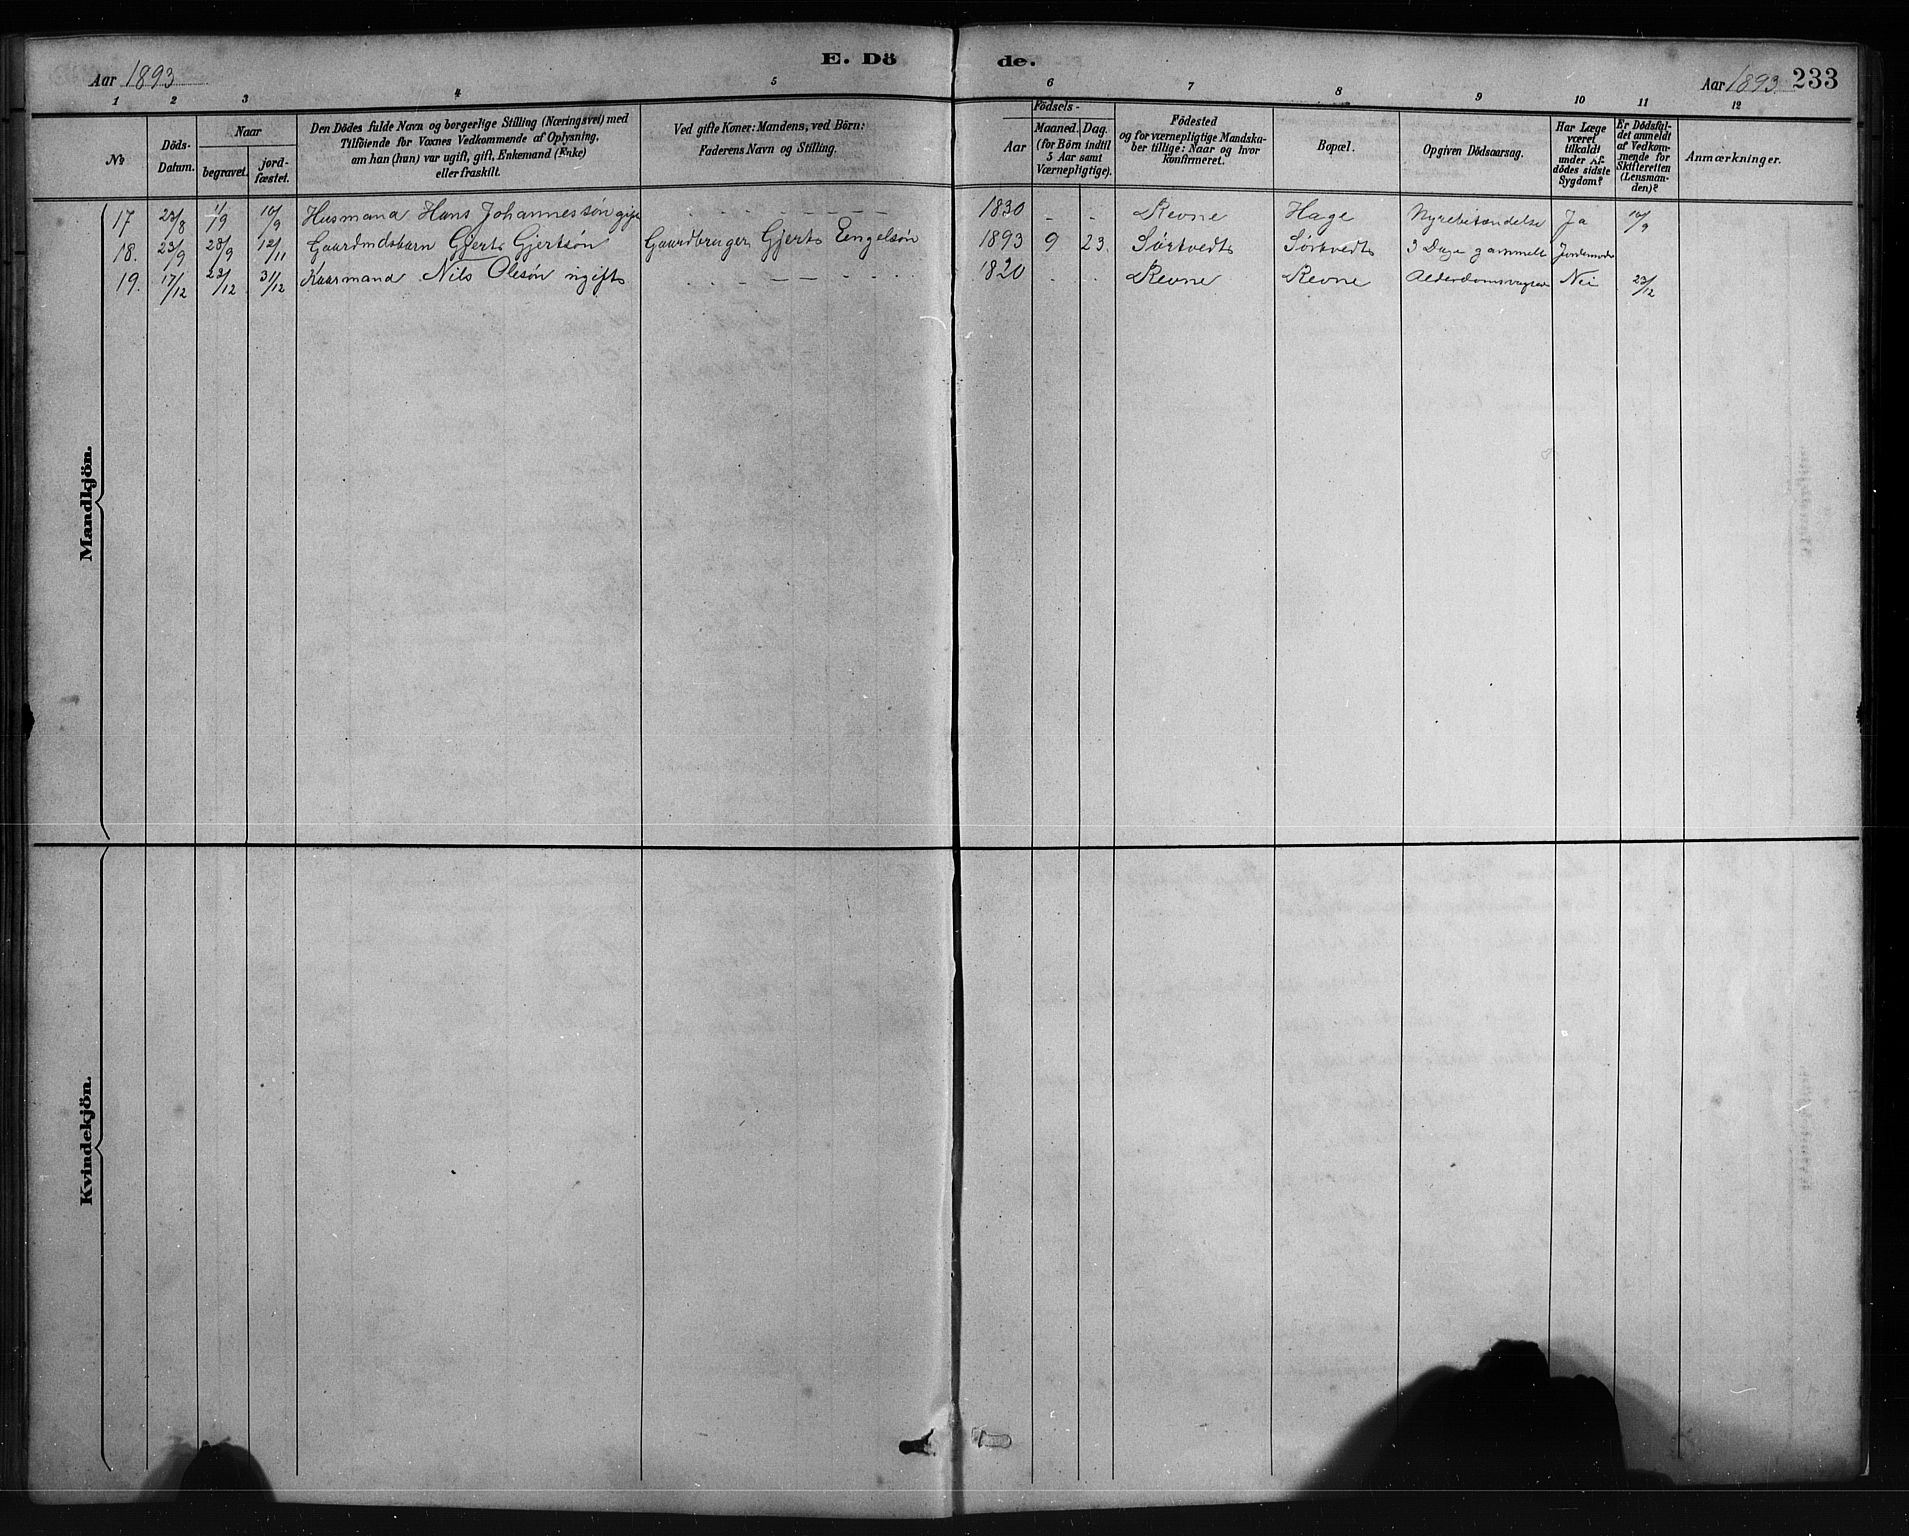 E. Dö de.
Aar 1893
Aar 1893. 233
1 2 3 4 5 6 7 8 9 10 11 12
No
Döds-
Datum.
Naar
begravet.
jord-
fæstet.
Den Dödes fulde Navn og borgerlige Stilling (Næringsvei) med
Tilföiende for Voxnes Vedkommende af Oplysning,
om han (hun) var ugift, gift, Enkemand (Enke)
eller fraskilt.
Ved gifte Koner: Mandens, ved Börn:
Faderens Navn og Stilling.
Födsels-
Aar
Maaned. Dag.
(for Börn indtil
5 Aar samt
Værnepligtige).
Födested
og for værnepligtige Mandska-
ber tillige: Naar og hvor
konfirmeret.
Bopæl.
Opgiven Dödsaarsag.
Har Læge
været
tilkaldt
under Af-
dödes sidste
Sygdom?
Er Dödsfal-
det anmeldt
af Vedkom-
mende for
Skifteretten
(Lensman-
den)?
Anmærkninger.
Mandkjön.
17 23/8 1/9 10/9 Husmand Hans Johannessön gift - - - - - - 1830 - - Revne Hage Nyrebetændelse Ja 10/9
18. 23/9 28/9 12/11 Gaardmdsbarn Gjert Gjertsön Gaardbruger Gjert Engelsön 1893 9 23. Sörtvedt Sörtvedt 3 Dage gammelt Jordemoder
19. 17/12 23/12 31/12 Kaarmand Nils Olesön ugift - - - - - - 1820 - - Revne Revne Nei 23/12
Kvindekjön.